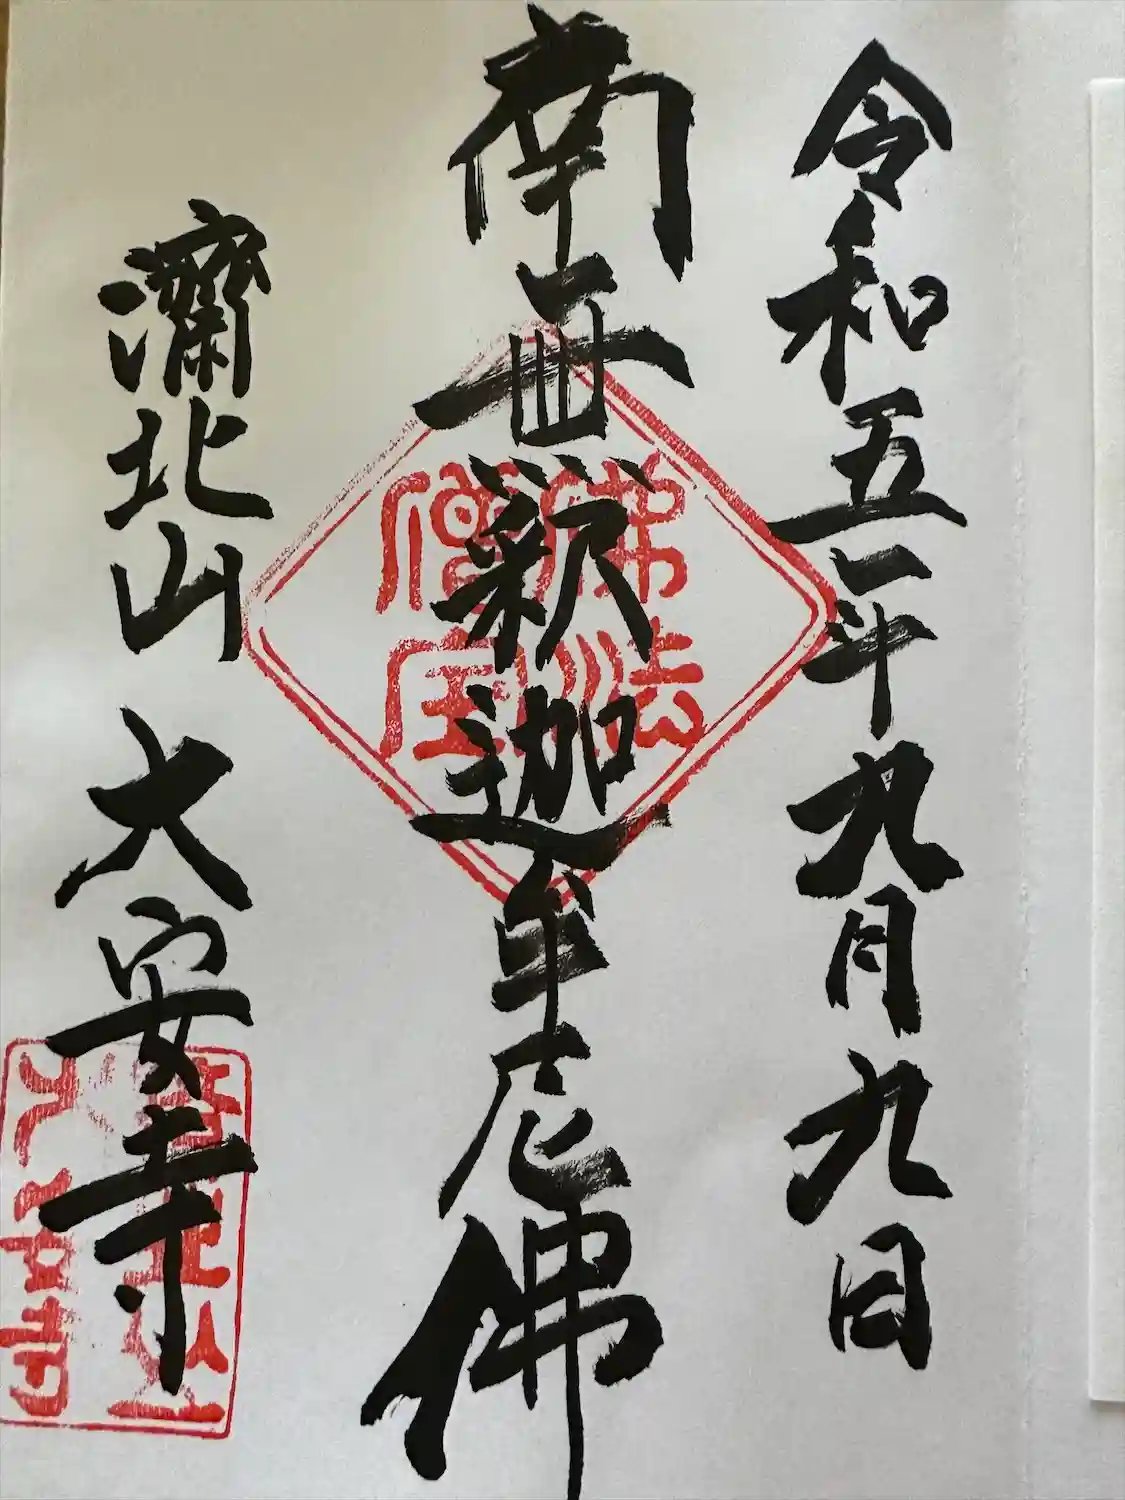 令和五年九月九日
南無釈迦牟尼佛
佛法
僧宝
濟北山 大安寺